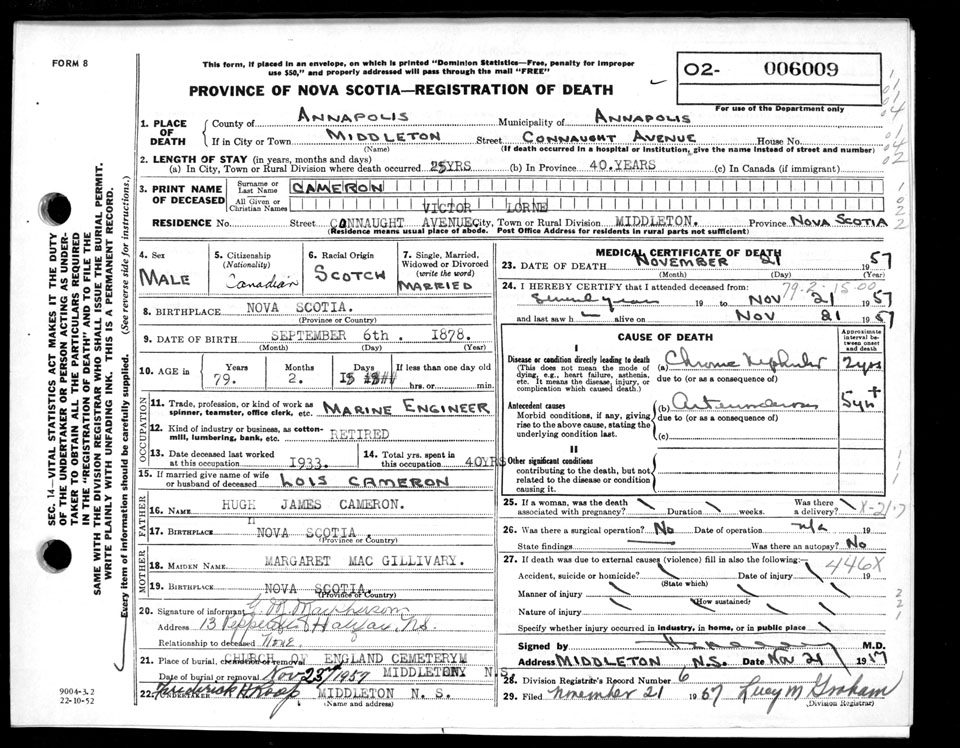 FORM 8
This form, if placed in an envelope, on which is printed "Dominion Statistics—Free, penalty for improper
use $50," and properly addressed will pass through the mail "FREE"
PROVINCE OF NOVA SCOTIA—REGISTRATION OF DEATH
02- 006009
For use of the Department only
1. PLACE OF DEATH
County of ANNAPOLIS Municipality of ANNAPOLIS
If in City or Town MIDDLETON Street CONNAUGHT AVENUE House No.
(Name) (If death occurred in a hospital or institution, give the name instead of street and number)
2. LENGTH OF STAY (in years, months and days)
(a) In City, Town or Rural Division where death occurred 25YRS (b) In Province 40.YEARS (c) In Canada (if immigrant)
3. PRINT NAME OF DECEASED
Surname or Last Name CAMERON
All Given or Christian Names VICTOR LORNE
RESIDENCE No. Street CONNAUGHT AVENUE City, Town or Rural Division MIDDLETON. Province NOVA SCOTIA
(Residence means usual place of abode. Post Office Address for residents in rural parts not sufficient)
4. Sex MALE
5. Citizenship (Nationality) Canadian
6. Racial Origin SCOTCH
7. Single, Married, Widowed or Divorced (write the word) MARRIED
8. BIRTHPLACE NOVA SCOTIA.
(Province or Country)
9. DATE OF BIRTH SEPTEMBER 6th. 1878.
(Month) (Day) (Year)
10. AGE in Years 79. Months 2. Days 15 If less than one day old hrs. or min.
OCCUPATION
11. Trade, profession, or kind of work as spinner, teamster, office clerk, etc. MARINE ENGINEER
12. Kind of industry or business, as cotton-mill, lumbering, bank, etc. RETIRED
13. Date deceased last worked at this occupation 1933.
14. Total yrs. spent in this occupation 40YRS
15. If married give name of wife or husband of deceased LOIS CAMERON
FATHER
16. NAME HUGH JAMES CAMERON.
17. BIRTHPLACE NOVA SCOTIA.
(Province or Country)
MOTHER
18. MAIDEN NAME MARGARET MAC GILLIVARY.
19. BIRTHPLACE NOVA SCOTIA.
(Province or Country)
20. Signature of informant G. M. MacPherson
Address 13 Halifax, N.S.
Relationship to deceased None.
21. Place of burial, cremation or removal CHURCH OF ENGLAND CEMETERYM
Date of burial or removal Nov 23rd 1957 MIDDLETONY N.S.
22. UNDERTAKER Frederick H Roop MIDDLETON N. S.
(Name and address)
9004-3.2
22-10-52
MEDICAL CERTIFICATE OF DEATH
23. DATE OF DEATH NOVEMBER 21 1957
(Month) (Day) (Year)
79.2-15.00
24. I HEREBY CERTIFY that I attended deceased from:
Several years 19 to NOV 21 1957
and last saw h alive on NOV 21 1957
CAUSE OF DEATH
Approximate interval between onset and death
I
Disease or condition directly leading to death
(This does not mean the mode of dying, e.g., heart failure, asthenia, etc. It means the disease, injury, or complication which caused death.)
(a) Chronic Nephritis 2yrs
due to (or as a consequence of)
Antecedent causes
Morbid conditions, if any, giving rise to the above cause, stating the underlying condition last.
(b) Arteriosclerosis 5yrs +
due to (or as a consequence of)
(c)
II
Other significant conditions
contributing to the death, but not related to the disease or condition causing it.
25. If a woman, was the death associated with pregnancy? Duration weeks. Was there a delivery?
26. Was there a surgical operation? No Date of operation n/a 19
State findings Was there an autopsy? No
27. If death was due to external causes (violence) fill in also the following: 446X
Accident, suicide or homicide? Date of injury 19
(State which)
Manner of injury
(How sustained)
Nature of injury
Specify whether injury occurred in industry, in home, or in public place
Signed by M.D.
Address MIDDLETON N.S. Date NOV 21 1957
28. Division Registrar's Record Number 6
29. Filed November 21 1957 Lucy M Graham
(Division Registrar)
SEC. 14—VITAL STATISTICS ACT MAKES IT THE DUTY
OF THE UNDERTAKER OR PERSON ACTING AS UNDER-
TAKER TO OBTAIN ALL THE PARTICULARS REQUIRED
IN THE "REGISTRATION OF DEATH" AND TO FILE THE
SAME WITH THE DIVISION REGISTRAR WHO SHALL ISSUE THE BURIAL PERMIT.
WRITE PLAINLY WITH UNFADING INK. THIS IS A PERMANENT RECORD.
Every item of information should be carefully supplied. (See reverse side for instructions.)